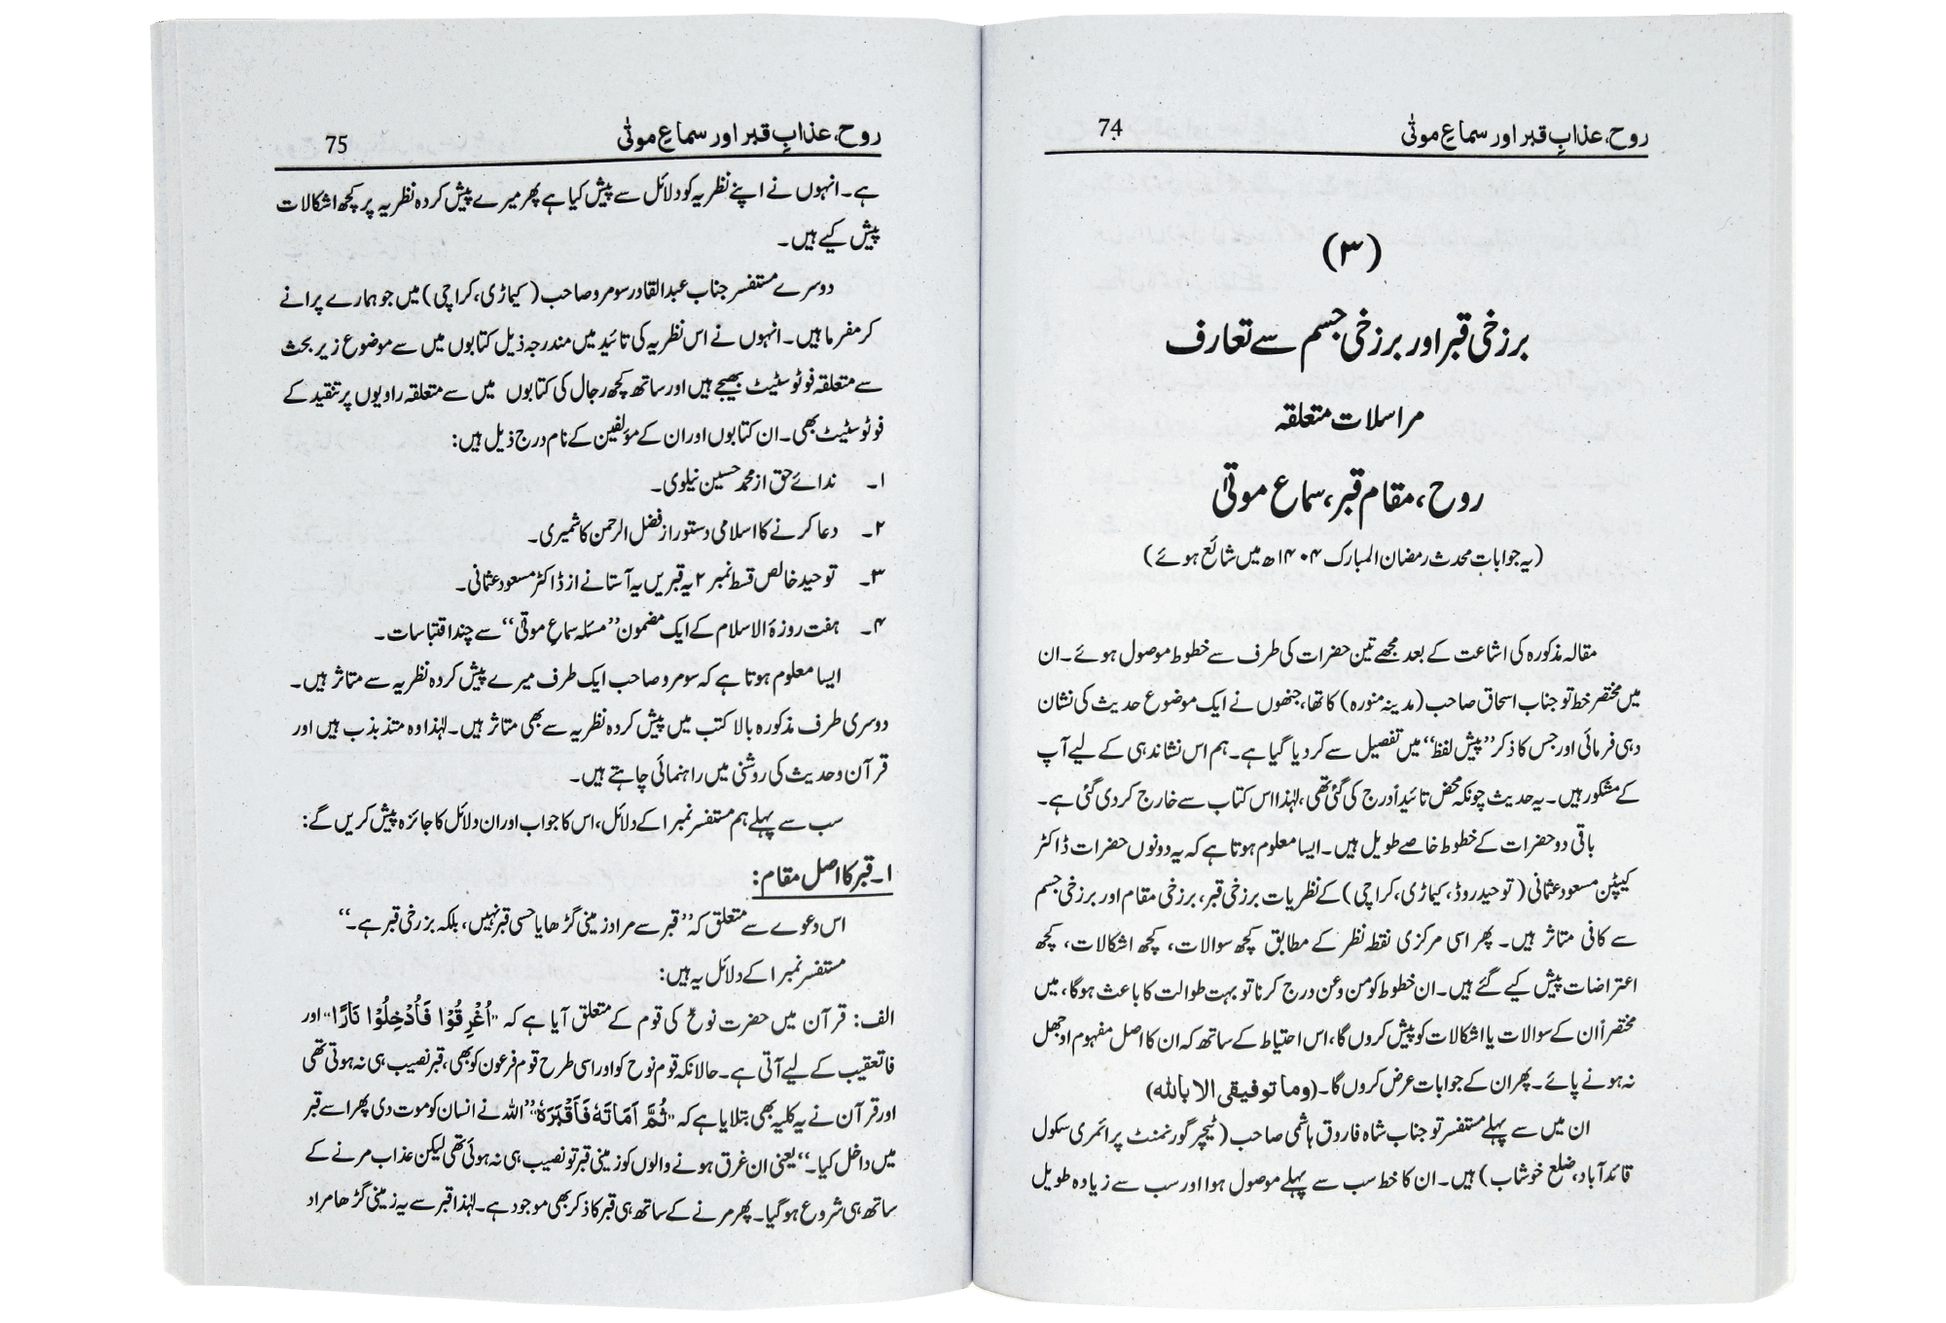 روح، عذابِ قبر اور سماعِ موتٰی 74
(۳)
برزخی قبر اور برزخی جسم سے تعارف
مراسلات متعلقہ
روح، مقام قبر، سماع موتٰی
(یہ جوابات محدث رمضان المبارک ۱۴۰۴ھ میں شائع ہوئے)
مقالہ مذکورہ کی اشاعت کے بعد مجھے تین حضرات کی طرف سے خطوط موصول ہوئے۔ ان
میں مختصر خط تو جناب اسحاق صاحب (مدینہ منورہ) کا تھا، جنھوں نے ایک موضوع حدیث کی نشان
دہی فرمائی اور جس کا ذکر ”پیش لفظ“ میں تفصیل سے کر دیا گیا ہے۔ ہم اس نشاندہی کے لیے آپ
کے مشکور ہیں۔ یہ حدیث چونکہ محض تائیداً درج کی گئی تھی، لہٰذا اس کتاب سے خارج کر دی گئی ہے۔
باقی دو حضرات کے خطوط خاصے طویل ہیں۔ ایسا معلوم ہوتا ہے کہ یہ دونوں حضرات ڈاکٹر
کیپٹن مسعود عثمانی (توحید روڈ، کیماڑی، کراچی) کے نظریات برزخی قبر، برزخی مقام اور برزخی جسم
سے کافی متاثر ہیں۔ پھر اسی مرکزی نقطہ نظر کے مطابق کچھ سوالات، کچھ اشکالات، کچھ
اعتراضات پیش کیے گئے ہیں۔ ان خطوط کو من وعن درج کرنا تو بہت طوالت کا باعث ہوگا، میں
مختصراً ان کے سوالات یا اشکالات کو پیش کروں گا، اس احتیاط کے ساتھ کہ ان کا اصل مفہوم اوجھل
نہ ہونے پائے۔ پھر ان کے جوابات عرض کروں گا۔ (وما توفیقی الا باللہ)
ان میں سے پہلے مستفسر تو جناب شاہ فاروق ہاشمی صاحب (ٹیچر گورنمنٹ پرائمری سکول
قائد آباد، ضلع خوشاب) ہیں۔ ان کا خط سب سے پہلے موصول ہوا اور سب سے زیادہ طویل
روح، عذابِ قبر اور سماعِ موتٰی 75
ہے۔ انہوں نے اپنے نظریہ کو دلائل سے پیش کیا ہے پھر میرے پیش کردہ نظریہ پر کچھ اشکالات
پیش کیے ہیں۔
دوسرے مستفسر جناب عبدالقادر سومرو صاحب (کیماڑی، کراچی) میں جو ہمارے پرانے
کرمفرما ہیں۔ انہوں نے اس نظریہ کی تائید میں مندرجہ ذیل کتابوں میں سے موضوع زیر بحث
سے متعلقہ فوٹو سٹیٹ بھیجے ہیں اور ساتھ کچھ رجال کی کتابوں میں سے متعلقہ راویوں پر تنقید کے
فوٹو سٹیٹ بھی۔ ان کتابوں اور ان کے مؤلفین کے نام درج ذیل ہیں:
۱۔ ندائے حق از محمد حسین نیلوی۔
۲۔ دعا کرنے کا اسلامی دستور از فضل الرحمن کاشمیری۔
۳۔ توحید خالص قسط نمبر ۲ یہ قبریں یہ آستانے از ڈاکٹر مسعود عثمانی۔
۴۔ ہفت روزۂ الاسلام کے ایک مضمون ”مسئلہ سماعِ موتٰی“ سے چند اقتباسات۔
ایسا معلوم ہوتا ہے کہ سومرو صاحب ایک طرف میرے پیش کردہ نظریہ سے متاثر ہیں۔
دوسری طرف مذکورہ بالا کتب میں پیش کردہ نظریہ سے بھی متاثر ہیں۔ لہٰذا وہ متذبذب ہیں اور
قرآن و حدیث کی روشنی میں راہنمائی چاہتے ہیں۔
سب سے پہلے ہم مستفسر نمبر ۱ کے دلائل، اس کا جواب اور ان دلائل کا جائزہ پیش کریں گے:
۱۔ قبر کا اصل مقام:
اس دعوے سے متعلق کہ ”قبر سے مراد زمینی گڑھا یا حسی قبر نہیں، بلکہ بزرخی قبر ہے۔“
مستفسر نمبر ۱ کے دلائل یہ ہیں:
الف: قرآن میں حضرت نوحؑ کی قوم کے متعلق آیا ہے کہ ”اُغْرِقُوْا فَاُدْخِلُوْا نَارًا“ اور
فا تعقیب کے لیے آتی ہے۔ حالانکہ قوم نوح کو اور اسی طرح قوم فرعون کو بھی، قبر نصیب ہی نہ ہوتی تھی
اور قرآن نے یہ کلیہ بھی بتلایا ہے کہ ”ثُمَّ اَمَاتَهٗ فَاَقْبَرَهٗ“ ”اللہ نے انسان کو موت دی پھر اسے قبر
میں داخل کیا۔“ یعنی ان غرق ہونے والوں کو زمینی قبر تو نصیب ہی نہ ہوئی تھی لیکن عذاب مرنے کے
ساتھ ہی شروع ہو گیا۔ پھر مرنے کے ساتھ ہی قبر کا ذکر بھی موجود ہے۔ لہٰذا قبر سے یہ زمینی گڑھا مراد